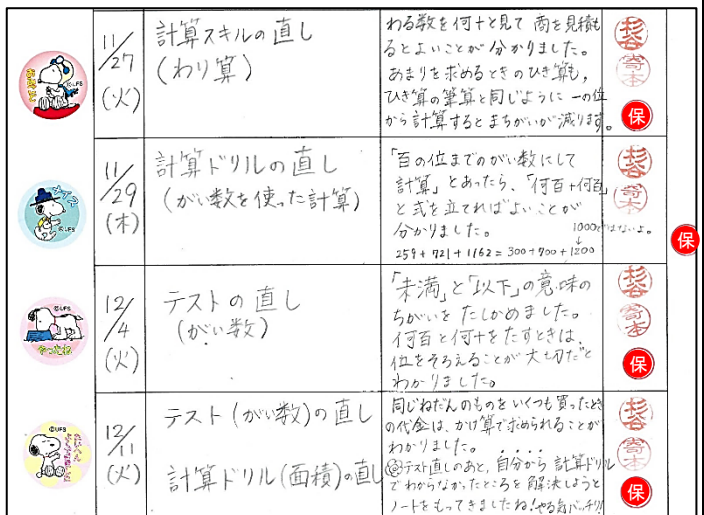 11/27
(火)
計算スキルの直し
(わり算)
わる数を何十と見て 商を見積も
るとよいことが 分かりました。
あまりを求めるときのひき算も，
ひき算の筆算と同じように 一の位
から計算するとまちがいが減ります。
杉谷
寄本
保
©UFS
11/29
(木)
計算ドリルの直し
(がい数を使った計算)
「百の位までのがい数にして
計算」とあったら、「何百+何百」
と式を立てればよいことが
分かりました。
1000ではないよ。
↓
259 + 721 + 1162 = 300 + 700 + 1200
杉谷
寄本
保
©UFS
12/4
(火)
テストの直し
(がい数)
「未満」と「以下」の意味の
ちがいを たしかめました。
何百と何十をたすときは、
位をそろえることが大切だと
わかりました。
杉谷
寄本
保
©UFS
やったね
12/11
(火)
テスト(がい数)の直し
計算ドリル(面積)の直し
同じねだんのものをいくつも買ったとき
の代金は、かけ算で求められることが
わかりました。
テスト直しのあと、自分から計算ドリル
でわからなかったところを解決しようと
ノートをもってきましたね!やる気バッチリ!
杉谷
寄本
保
©UFS